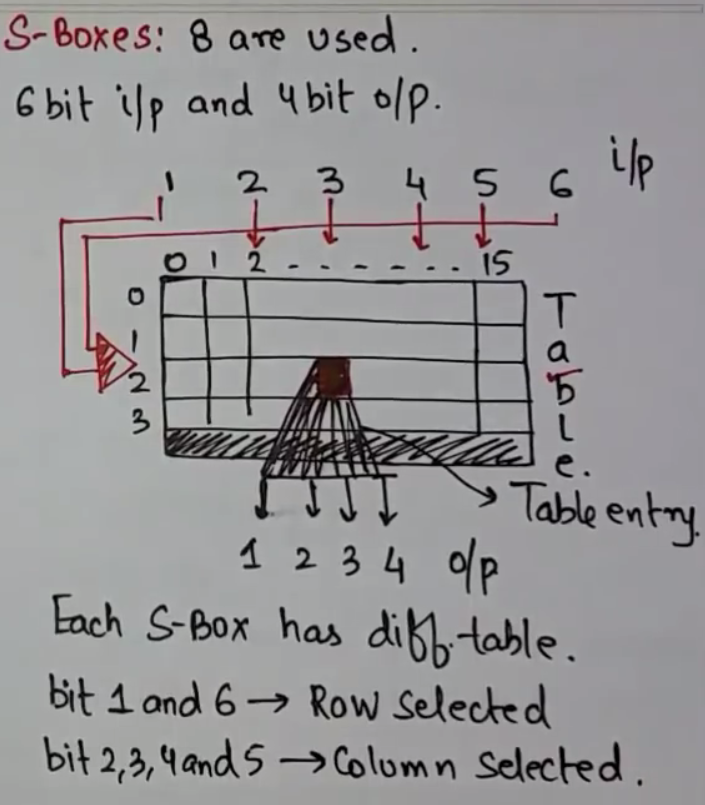 S-Boxes: 8 are used.
6 bit i/p and 4 bit o/p.
i/p
1 2 3 4 5 6
0 1 2 - - - - - - . . 15
0
1
2
3
Table.
Table entry.
1 2 3 4 o/p
Each S-Box has diff. table.
bit 1 and 6 → Row selected
bit 2, 3, 4 and 5 → Column selected.